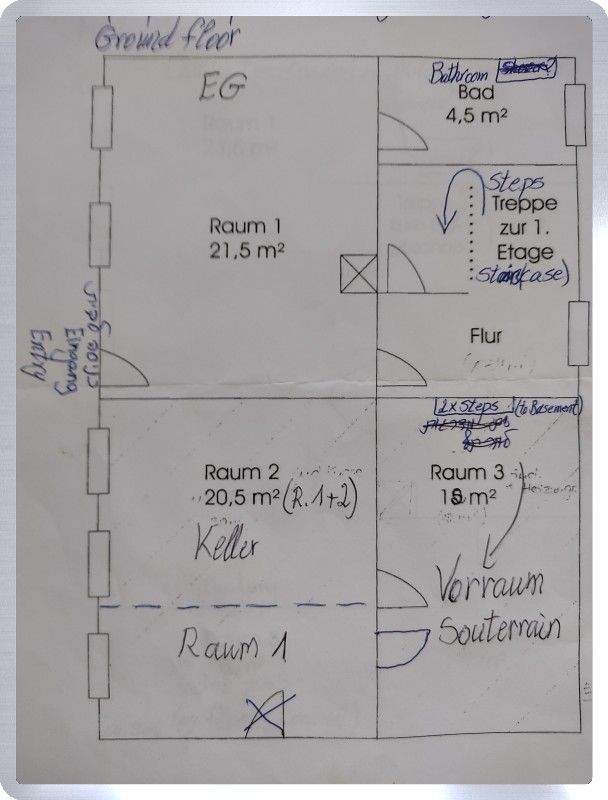 Ground floor
EG
Bathroom
Bad
4,5 m²
Steps
Treppe
zur 1.
Etage
Stair(case)
Raum 1
21,5 m²
Flur
Eingang
Entry
2x Steps (to Basement)
Raum 2
20,5 m² (R. 1+2)
Keller
Raum 3
18 m²
Vorraum
Souterrain
Raum 1